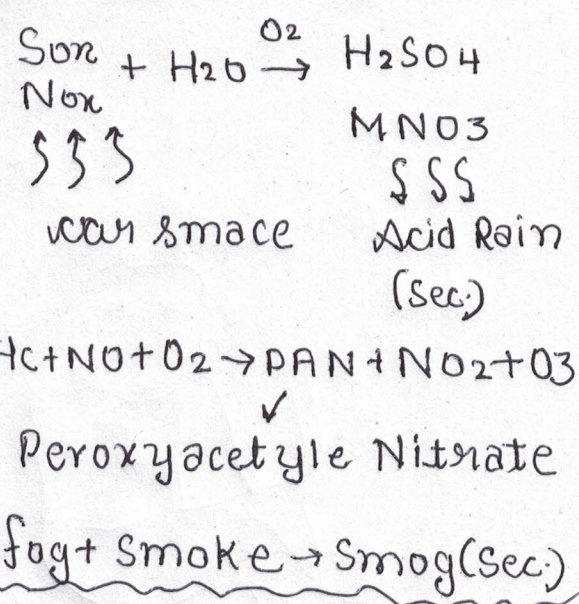 Sox + H2O O2→ H2SO4
Nox MNO3
car smace Acid Rain
(Sec.)
HC+NO+O2→PAN+NO2+O3
Peroxyacetyle Nitrate
fog+ Smoke→Smog(Sec.)